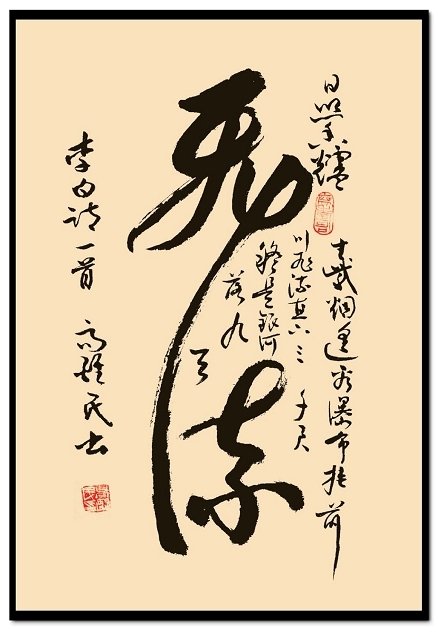 飛流
日照香爐
生紫烟遥看瀑布挂前
川飛流直下三千尺
疑是銀河
落九
天
李白诗一首 高 民书